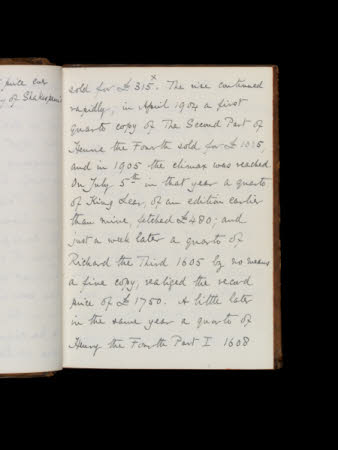 price ever
of Shakespeare
x
sold for £315. The rise continued
rapidly; in April 1904 a first
quarto copy of The Second Part of
Henrie the Fourth sold for £1035,
and in 1905 the climax was reached.
On July 5th in that year a quarto
of King Lear, of an edition earlier
than mine, fetched £480; and
just a week later a quarto of
Richard the Third 1605 by no means
a fine copy, realized the record
price of £1750. A little later
in the same year a quarto of
Henry the Fourth Part I 1608